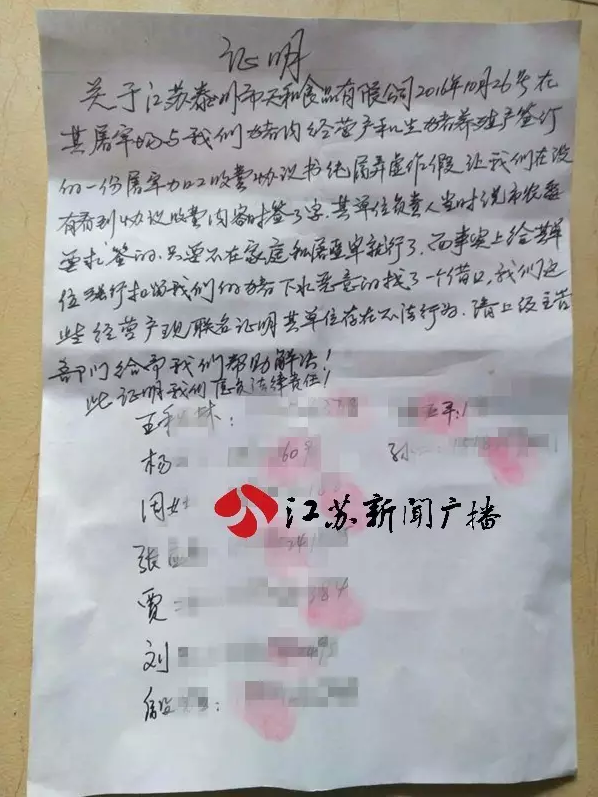 证明
关于江苏泰州市天和食品有限公司2016年10月26号在
其屠宰场与我们猪肉经营户和生猪养殖户签订
的一份屠宰加工收费协议书纯属弄虚作假让我们在没
有看到协议收费内容时签了字.其单位负责人当时说市农委
要求签的.只要不在家庭私屠乱宰就行了.而事实上给其单
位强行扣留我们的猪下水恶意的找了一个借口,我们这
些经营户现联名证明其单位存在不法行为.请上级主管
部门给予我们帮助解决!
此证明我们愿负法律责任!
王 妹:
杨 609
孙
周
张 241
贾 384
刘
江苏新闻广播